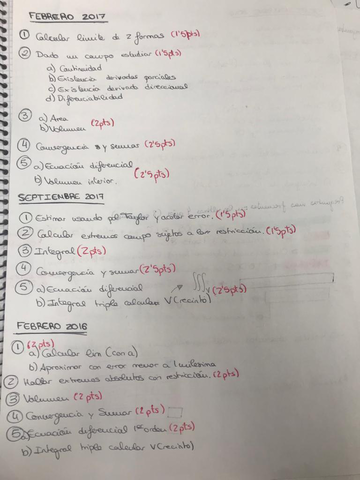 FEBRERO 2017
① Calcular límite de 2 formas (1'5pts)
② Dado un campo estudiar (1'5pts)
a) Continuidad
b) Existencia derivadas parciales
c) Existencia derivada direccional
d) Diferenciabilidad
③ a) Area
b) Volumen (2pts)
④ Convergencia y sumar (2'5pts)
⑤ a) Ecuación diferencial
b) Volumen interior. (2'5pts)
SEPTIEMBRE 2017
① Estimar usando pol Taylor y acotar error. (1'5pts)
② Calcular extremos campo sujetos a la restricción. (1'5pts)
③ Integral (2pts)
④ Convergencia y sumar (2'5pts)
⑤ a) Ecuación diferencial ∭ (2'5pts)
b) Integral triple calcular V(recinto)
FEBRERO 2016
① (2pts)
a) Calcular lim (con a)
b) Aproximar con error menor a 1 milésima
② Hallar extremos absolutos con restricción. (2pts)
③ Volumen (2pts)
④ Convergencia y Sumar (2pts)
⑤ a) Ecuación diferencial 1er orden (2pts)
b) Integral triple calcular V(recinto)